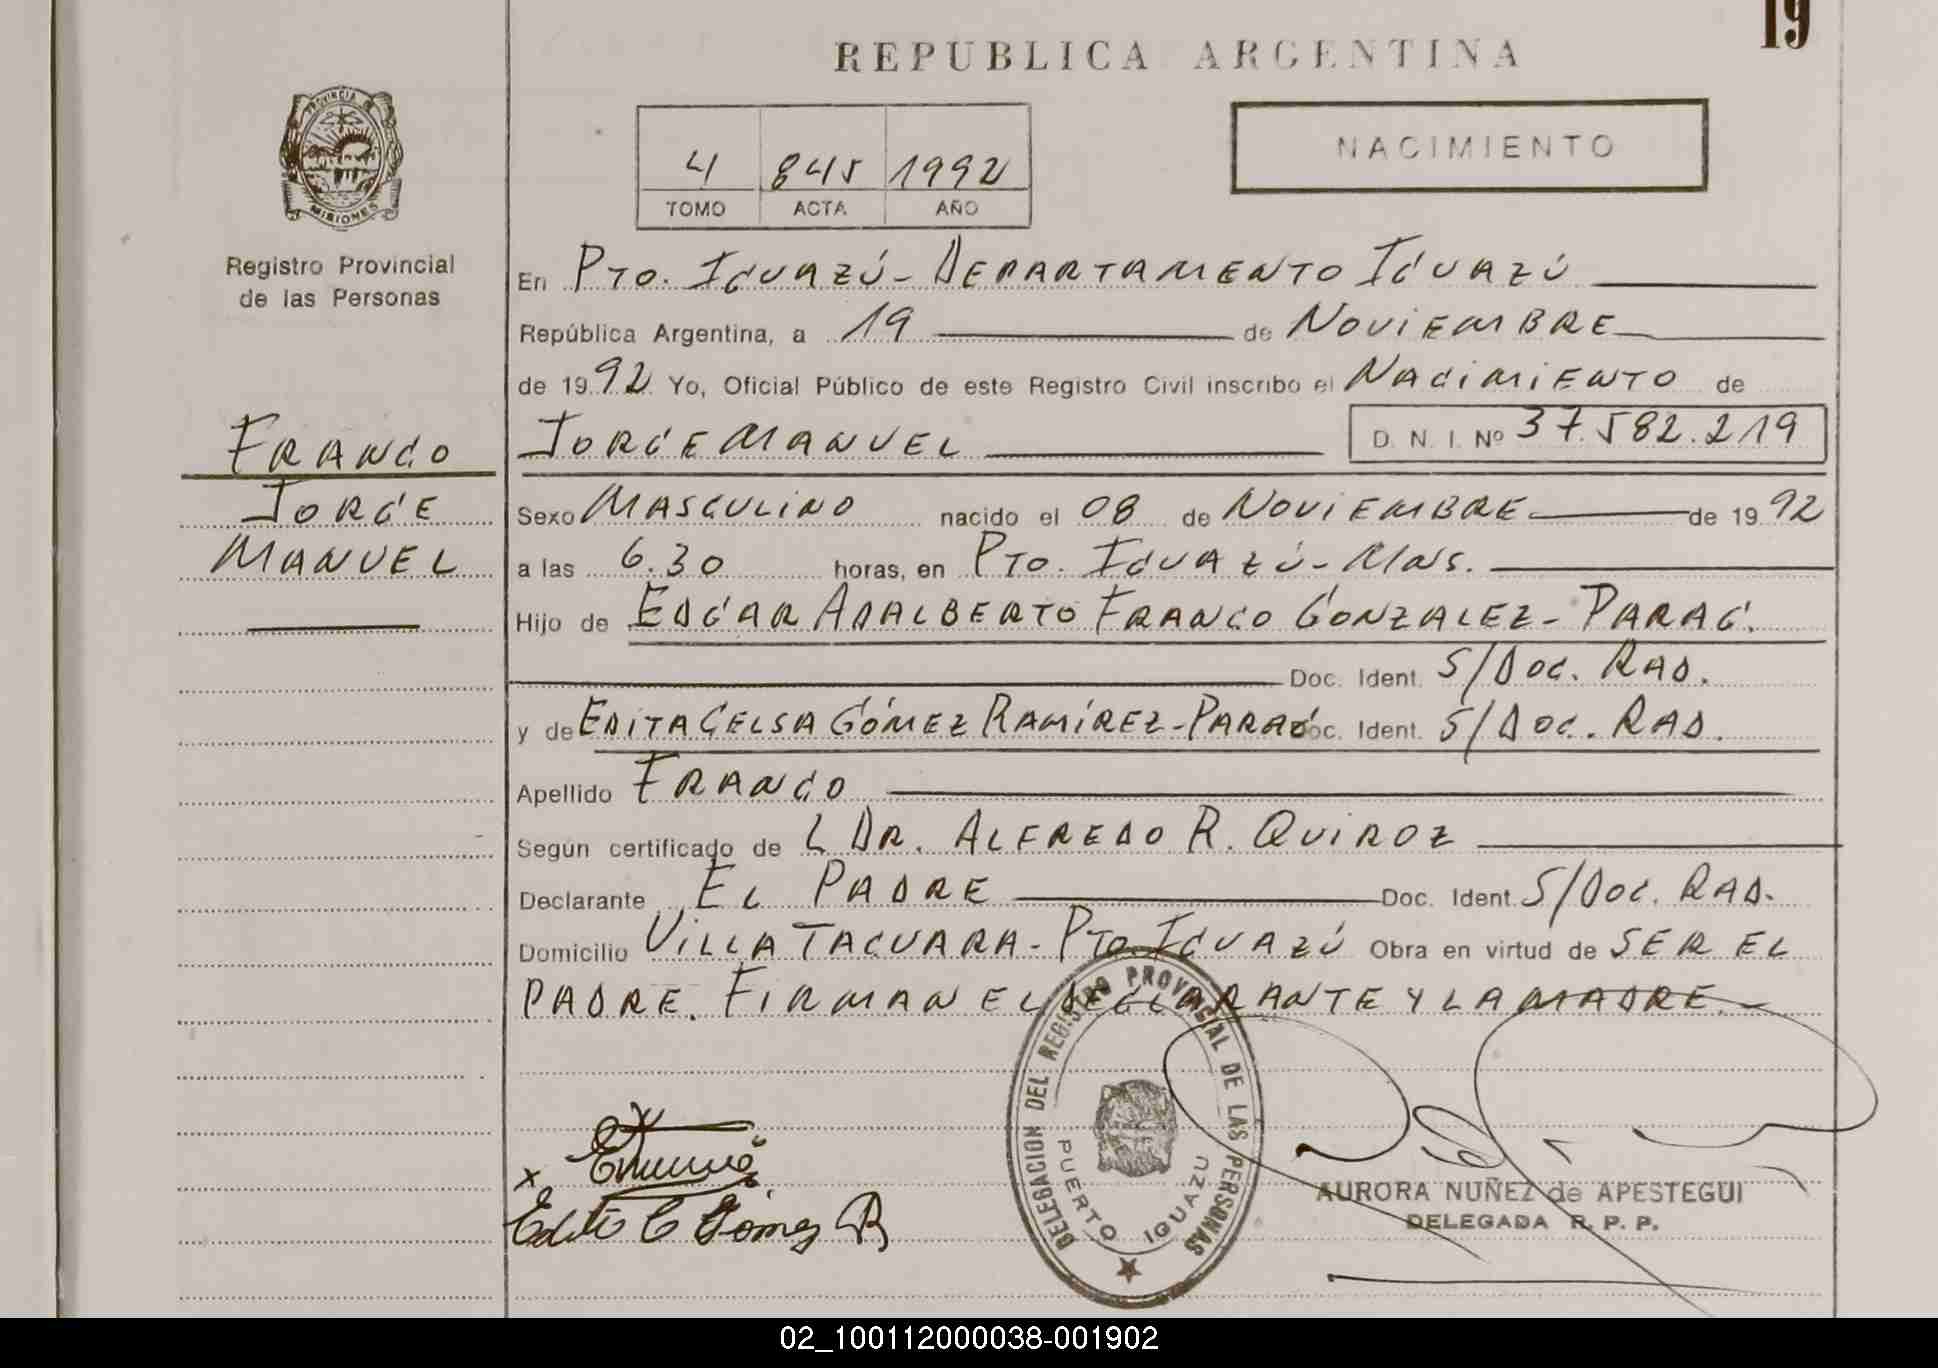 19
REPUBLICA ARGENTINA
PROVINCIA DE
MISIONES
Registro Provincial
de las Personas
4 845 1992
TOMO ACTA AÑO
NACIMIENTO
En PTO. IGUAZÚ - DEPARTAMENTO IGUAZÚ
República Argentina, a 19 de NOVIEMBRE
de 1992 Yo, Oficial Público de este Registro Civil inscribo el NACIMIENTO de
FRANCO
JORGE MANUEL D. N. I. Nº 37.582.219
JORGE
MANUEL
Sexo MASCULINO nacido el 08 de NOVIEMBRE de 1992
a las 6.30 horas, en PTO. IGUAZÚ - MNS.
Hijo de EDGAR ADALBERTO FRANCO GONZALEZ - PARAG.
Doc. Ident. S/DOC. RAD.
y de EDITA CELSA GÓMEZ RAMÍREZ - PARAG Doc. Ident. S/DOC. RAD.
Apellido FRANCO
Según certificado de L DR. ALFREDO R. QUIROZ
Declarante EL PADRE Doc. Ident. S/DOC. RAD.
Domicilio VILLA TACUARA - PTO. IGUAZÚ Obra en virtud de SER EL
PADRE. FIRMAN EL DECLARANTE Y LA MADRE. -
DELEGACION DEL REGISTRO PROVINCIAL DE LAS PERSONAS
PUERTO IGUAZU
x
Edita C Gómez R
AURORA NUÑEZ de APESTEGUI
DELEGADA R. P. P.
02_100112000038-001902